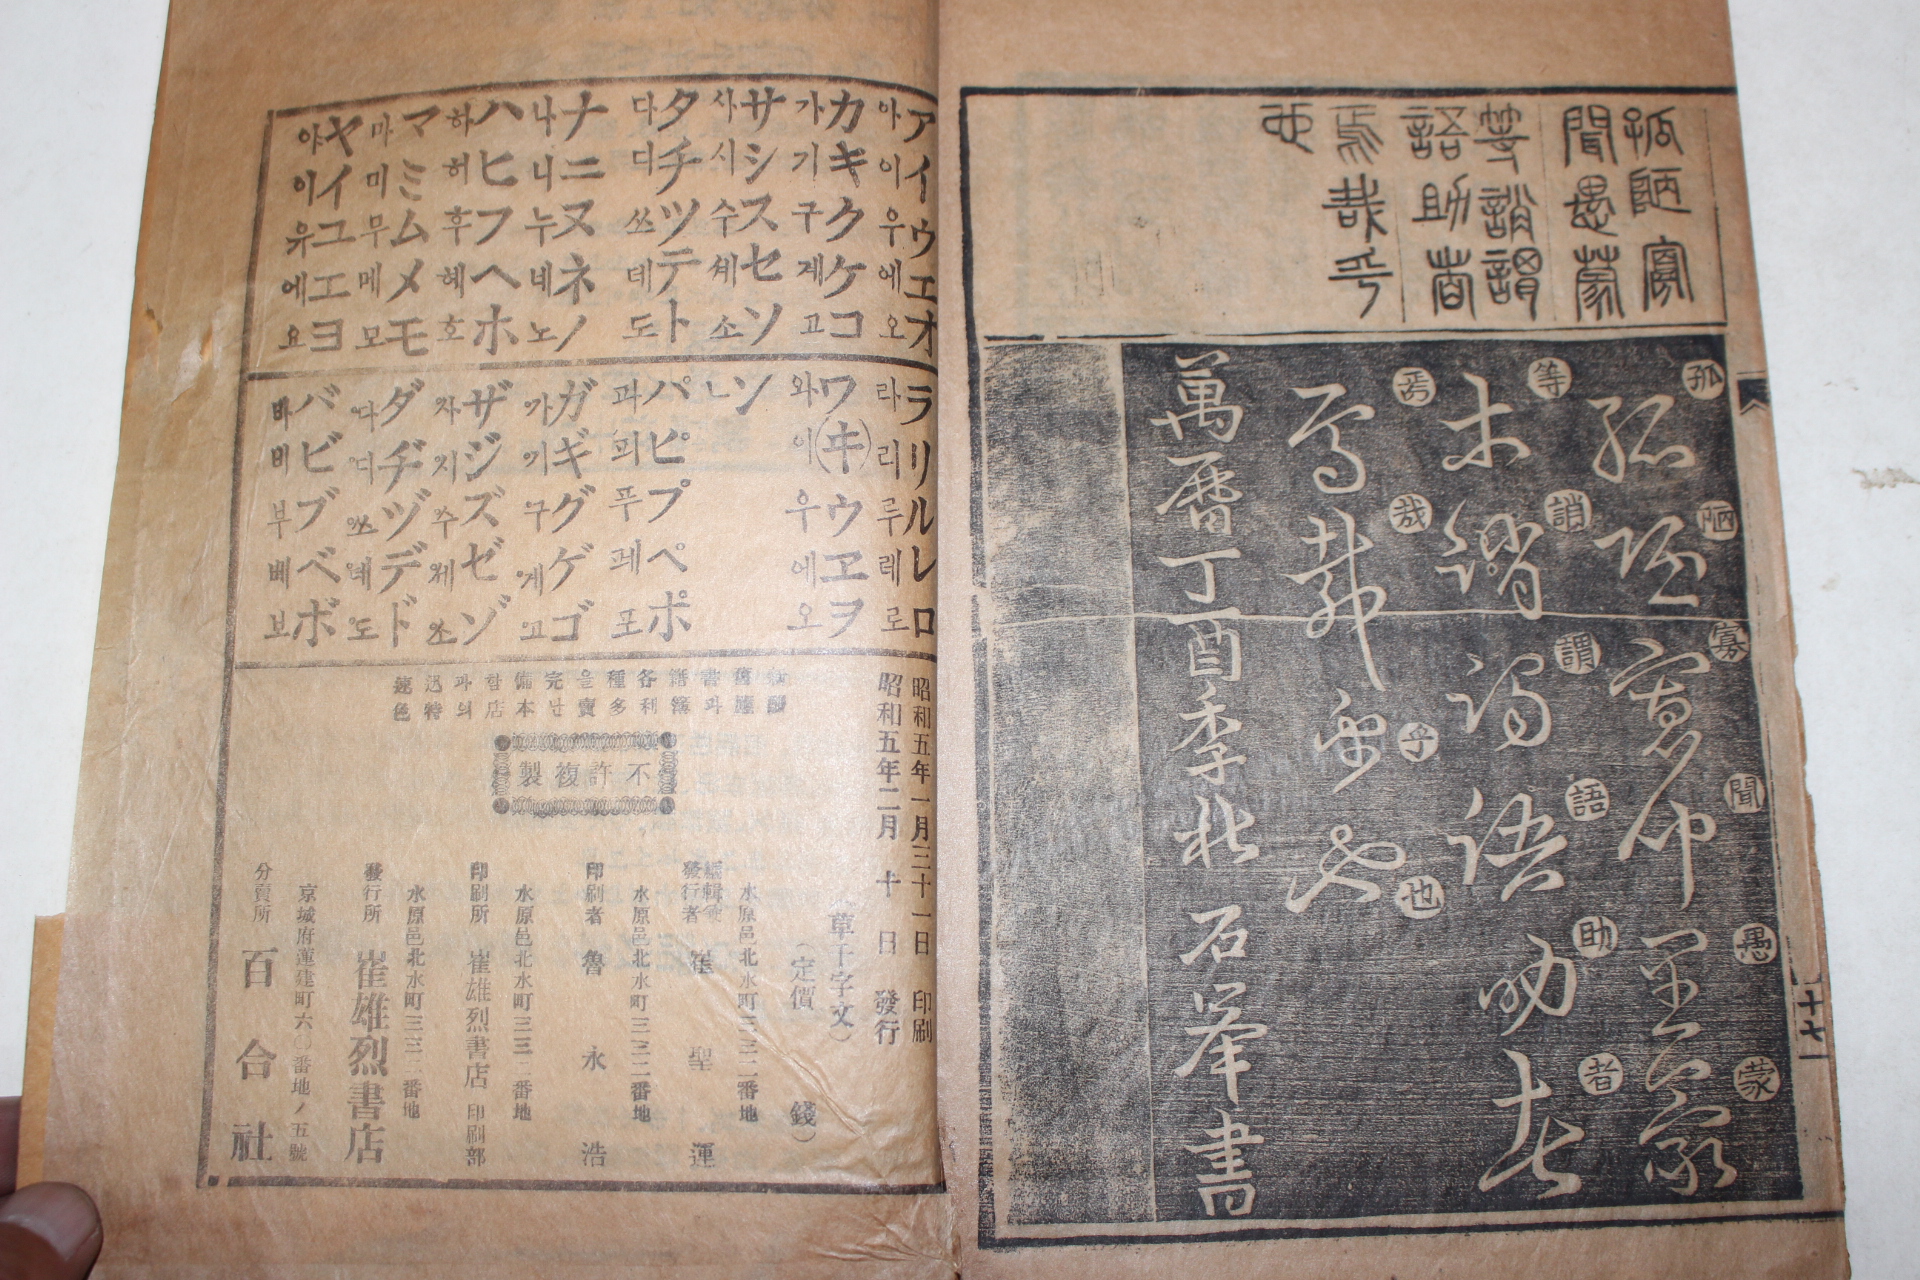 孤陋寡
聞愚蒙
等誚謂
語助者
焉哉乎
也
孤陋寡聞愚蒙
孤陋寡聞愚蒙
等誚謂語助者
等誚謂語助者
焉哉乎也
焉哉乎也
萬曆丁酉季秋石峯書
十七
アイウエオ
아이우에오
カキクケコ
가기구계고
サシスセソ
사시수세소
タチツテト
다디쓰데도
ナニヌネノ
나니누네노
ハヒフヘホ
하허후혜호
マミムメモ
마미무메모
ヤイユエヨ
야이유에요
ラリルレロ
라리루레로
ワ(ヰ)ウヱヲ
와이우에오
ン
ㄴ
パピプペポ
파피푸페포
ガギグゲゴ
ザジズゼゾ
ダヂヅデド
バビブベボ
바비부베보
昭和五年一月三十一日 印刷
昭和五年二月十日 發行
草千字文)
(定價 錢)
書과
籍簿
各利
種多
을賣
完난
備本
함店
과의
迅特
速色
不許複製
水原邑北水町三三二番地
編輯兼
發行者 崔聖運
水原邑北水町三三二番地
印刷者 魯永浩
水原邑北水町三三二番地
印刷所 崔雄烈書店印刷部
水原邑北水町三三二番地
發行所 崔雄烈書店
京城府蓮建町六〇番地ノ五號
分賣所 百合社